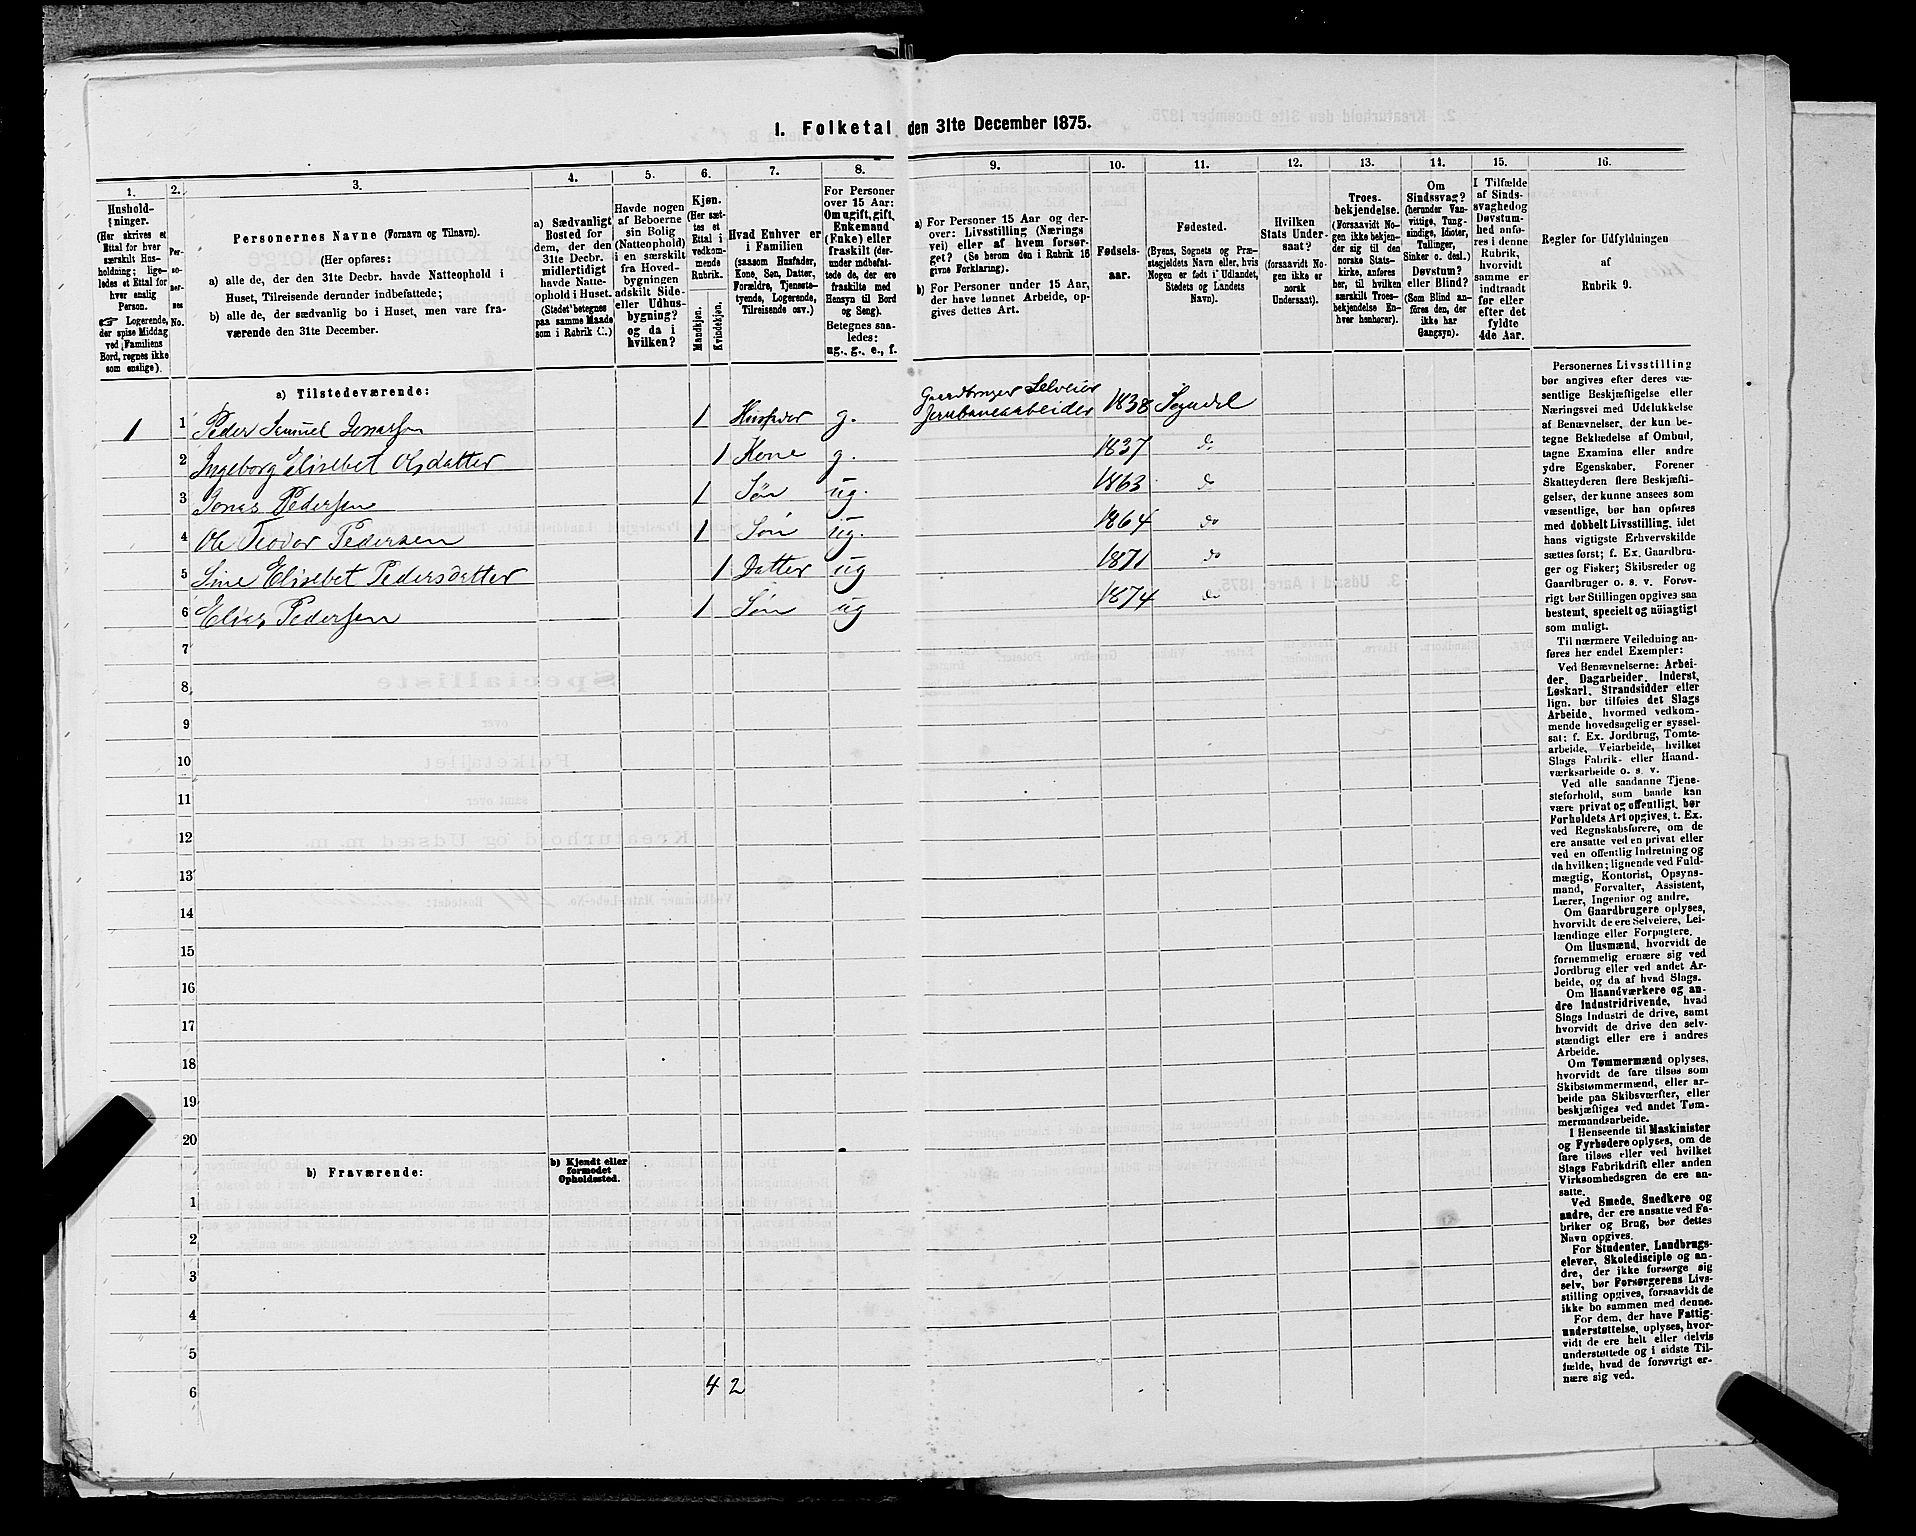 1. Folketal den 31te December 1875.
1.
2.
3.
4.
5.
6.
7.
8.
9.
10.
11.
12.
13.
14.
15.
16.
Hushold-
ninger.
(Her skrives et
Ettal for hver
særskilt Hus-
holdning; lige-
ledes et Ettal for
hver enslig
Person.
☞ Logerende,
der spise Middag
ved Familiens
Bord, regnes ikke
som enslige).
Per-
so-
ner-
nes
No.
Personernes Navne (Fornavn og Tilnavn).
(Her opføres:
a) alle de, der den 31te Decbr. havde Natteophold i
Huset, Tilreisende derunder indbefattede;
b) alle de, der sædvanlig bo i Huset, men vare fra-
værende den 31te December.
a) Sædvanligt
Bosted for
dem, der den
31te Decbr.
midlertidigt
havde Natte-
ophold i Huset.
(Stedet betegnes
paa samme Maade
som i Rubrik C.)
Havde nogen
af Beboerne
sin Bolig
(Natteophold)
i en særskilt
fra Hoved-
bygningen
adskilt Side-
eller Udhus-
bygning?
og da i
hvilken?
Kjøn.
(Her sæt-
tes et
Ettal i
vedkom-
mende
Rubrik.
Mandkjøn.
Kvindekjøn.
Hvad Enhver er
i Familien
(saasom Husfader,
Kone, Søn, Datter,
Forældre, Tjeneste-
tyende, Logerende,
Tilreisende osv.)
For Personer
over 15 Aar:
Om ugift, gift,
Enkemand
(Enke) eller
fraskilt (der-
under indbefat-
tede de, der ere
fraskilte med
Hensyn til Bord
og Seng).
Betegnes saa-
ledes:
ug., g., e., f.
a) For Personer 15 Aar og der-
over: Livsstilling (Nærings
vei) eller af hvem forsør-
get? (Se herom den i Rubrik 16
givne Forklaring).
b) For Personer under 15 Aar,
der have lønnet Arbeide, op-
gives dettes Art.
Fødsels-
aar.
Fødested.
(Byens, Sognets og Præ-
stegjeldets Navn eller, hvis
Nogen er født i Udlandet,
Stedets og Landets
Navn).
Hvilken
Stats Under-
saat?
(forsaavidt No-
gen ikke er
norsk
Undersaat).
Troes-
bekjendelse.
(Forsaavidt No-
gen ikke bekjen-
der sig til den
norske Stats-
kirke, anføres
her, til hvilken
særskilt Troes-
bekjendelse En-
hver henhører).
Om
Sindssvag?
(herunder Van-
vittige, Tung-
sindige, Idioter,
Tullinger,
Sinker o. desl.)
Døvstum?
eller Blind?
(Som Blind an-
føres den, der
ikke har
Gangsyn).
I Tilfælde
af Sinds-
svaghed og
Døvstum-
hed anfø-
res i denne
Rubrik,
hvorvidt
samme er
indtraadt
før eller
efter det
fyldte
4de Aar.
Regler for Udfyldningen
af
Rubrik 9.
a) Tilstedeværende:
1 1 Peder Samuel Jonassen 1 Husfader g. Gaardbruger Selveier
Jernbanearbeider 1838 Sogndal
2 Ingeborg Elisebet Olsdatter 1 Kone g. 1837 do
3 Jonas Pedersen 1 Søn ug. 1863 do
4 Ole Teodor Pedersen 1 Søn ug. 1864 do
5 Sine Elisebet Pedersdatter 1 Datter ug 1871 do
6 Elias Pedersen 1 Søn ug 1874 do
7
8
9
10
11
12
13
14
15
16
17
18
19
20
b) Fraværende:
b) Kjendt eller
formodet
Opholdssted.
1
2
3
4
5
6
4 2
Personernes Livsstilling
bør angives efter deres væ-
sentlige Beskjæftigelse eller
Næringsvei med Udelukkelse
af Benævnelser, der kun be-
tegne Beklædelse af Ombud,
tagne Examina eller andre
ydre Egenskaber. Forener
Skatteyderen flere Beskjæfti-
gelser, der kunne ansees som
væsentlige, bør han opføres
med dobbelt Livsstilling, idet
hans vigtigste Erhvervskilde
sættes først; f. Ex. Gaardbru-
ger og Fisker; Skibsreder og
Gaardbruger o. s. v. Forøv-
rigt bør Stillingen opgives saa
bestemt, specielt og nøiagtigt
som muligt.
Til nærmere Veiledning an-
føres her endel Exempler:
Ved Benævnelserne: Arbei-
der, Dagarbeider, Inderst,
Løskarl, Strandsidder eller
lign. bør tilføies det Slags
Arbeide, hvormed vedkom-
mende hovedsagelig er syssel-
sat; f. Ex. Jordbrug, Tomte-
arbeide, Veiarbeide, hvilket
Slags Fabrik- eller Haand-
værksarbeide o. s. v.
Ved alle saadanne Tjene-
steforhold, som baade kan
være privat og offentligt, bør
Forholdets Art opgives, f. Ex.
ved Regnskabsførere, om de
ere ansatte ved en privat eller
ved en offentlig Indretning og
da hvilken; lignende ved Fuld-
mægtig, Kontorist, Opsyns-
mand, Forvalter, Assistent,
Lærer, Ingeniør og andre.
Om Gaardbrugere oplyses,
hvorvidt de ere Selveiere, Lei-
lændinge eller Forpagtere.
Om Husmænd, hvorvidt de
fornemmelig ernære sig ved
Jordbrug eller ved andet Ar-
beide, og da af hvad Slags.
Om Haandværkere og an-
dre Industridrivende, hvad
Slags Industri de drive, samt
hvorvidt de drive den selv-
stændigt eller ere i andres
Arbeide.
Om Tømmermænd oplyses,
hvorvidt de fare tilsøs som
Skibstømmermænd, eller ar-
beide paa Skibsværfter, eller
beskjæftiges ved andet Tøm-
mermandsarbeide.
I Henseende til Maskinister
og Fyrbødere oplyses, om de
fare tilsøs eller ved hvilket
Slags Fabrikdrift eller anden
Virksomhedsgren de ere an-
satte.
Ved Smede, Snedkere og
andre, der ere ansatte ved Fa-
briker og Brug, bør dettes
Navn opgives.
For Studenter, Landbrugs-
elever, Skoledisciple og an-
dre, der ikke forsørge sig
selv, bør Forsørgerens Livs-
stilling opgives, forsaavidt de
ikke bo sammen med denne.
For dem, der have Fattig-
understøttelse, oplyses, hvor-
vidt de ere helt eller delvis
understøttede og i sidste Til-
fælde, hvad de forøvrigt er-
nære sig ved.